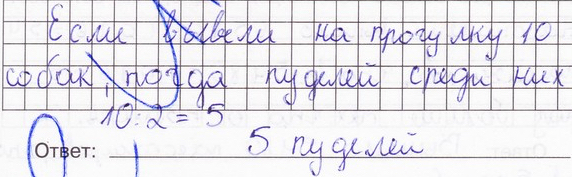 Если вывели на прогулку 10
собак, погда пуделей среди них
10:2=5
Ответ: 5 пуделей